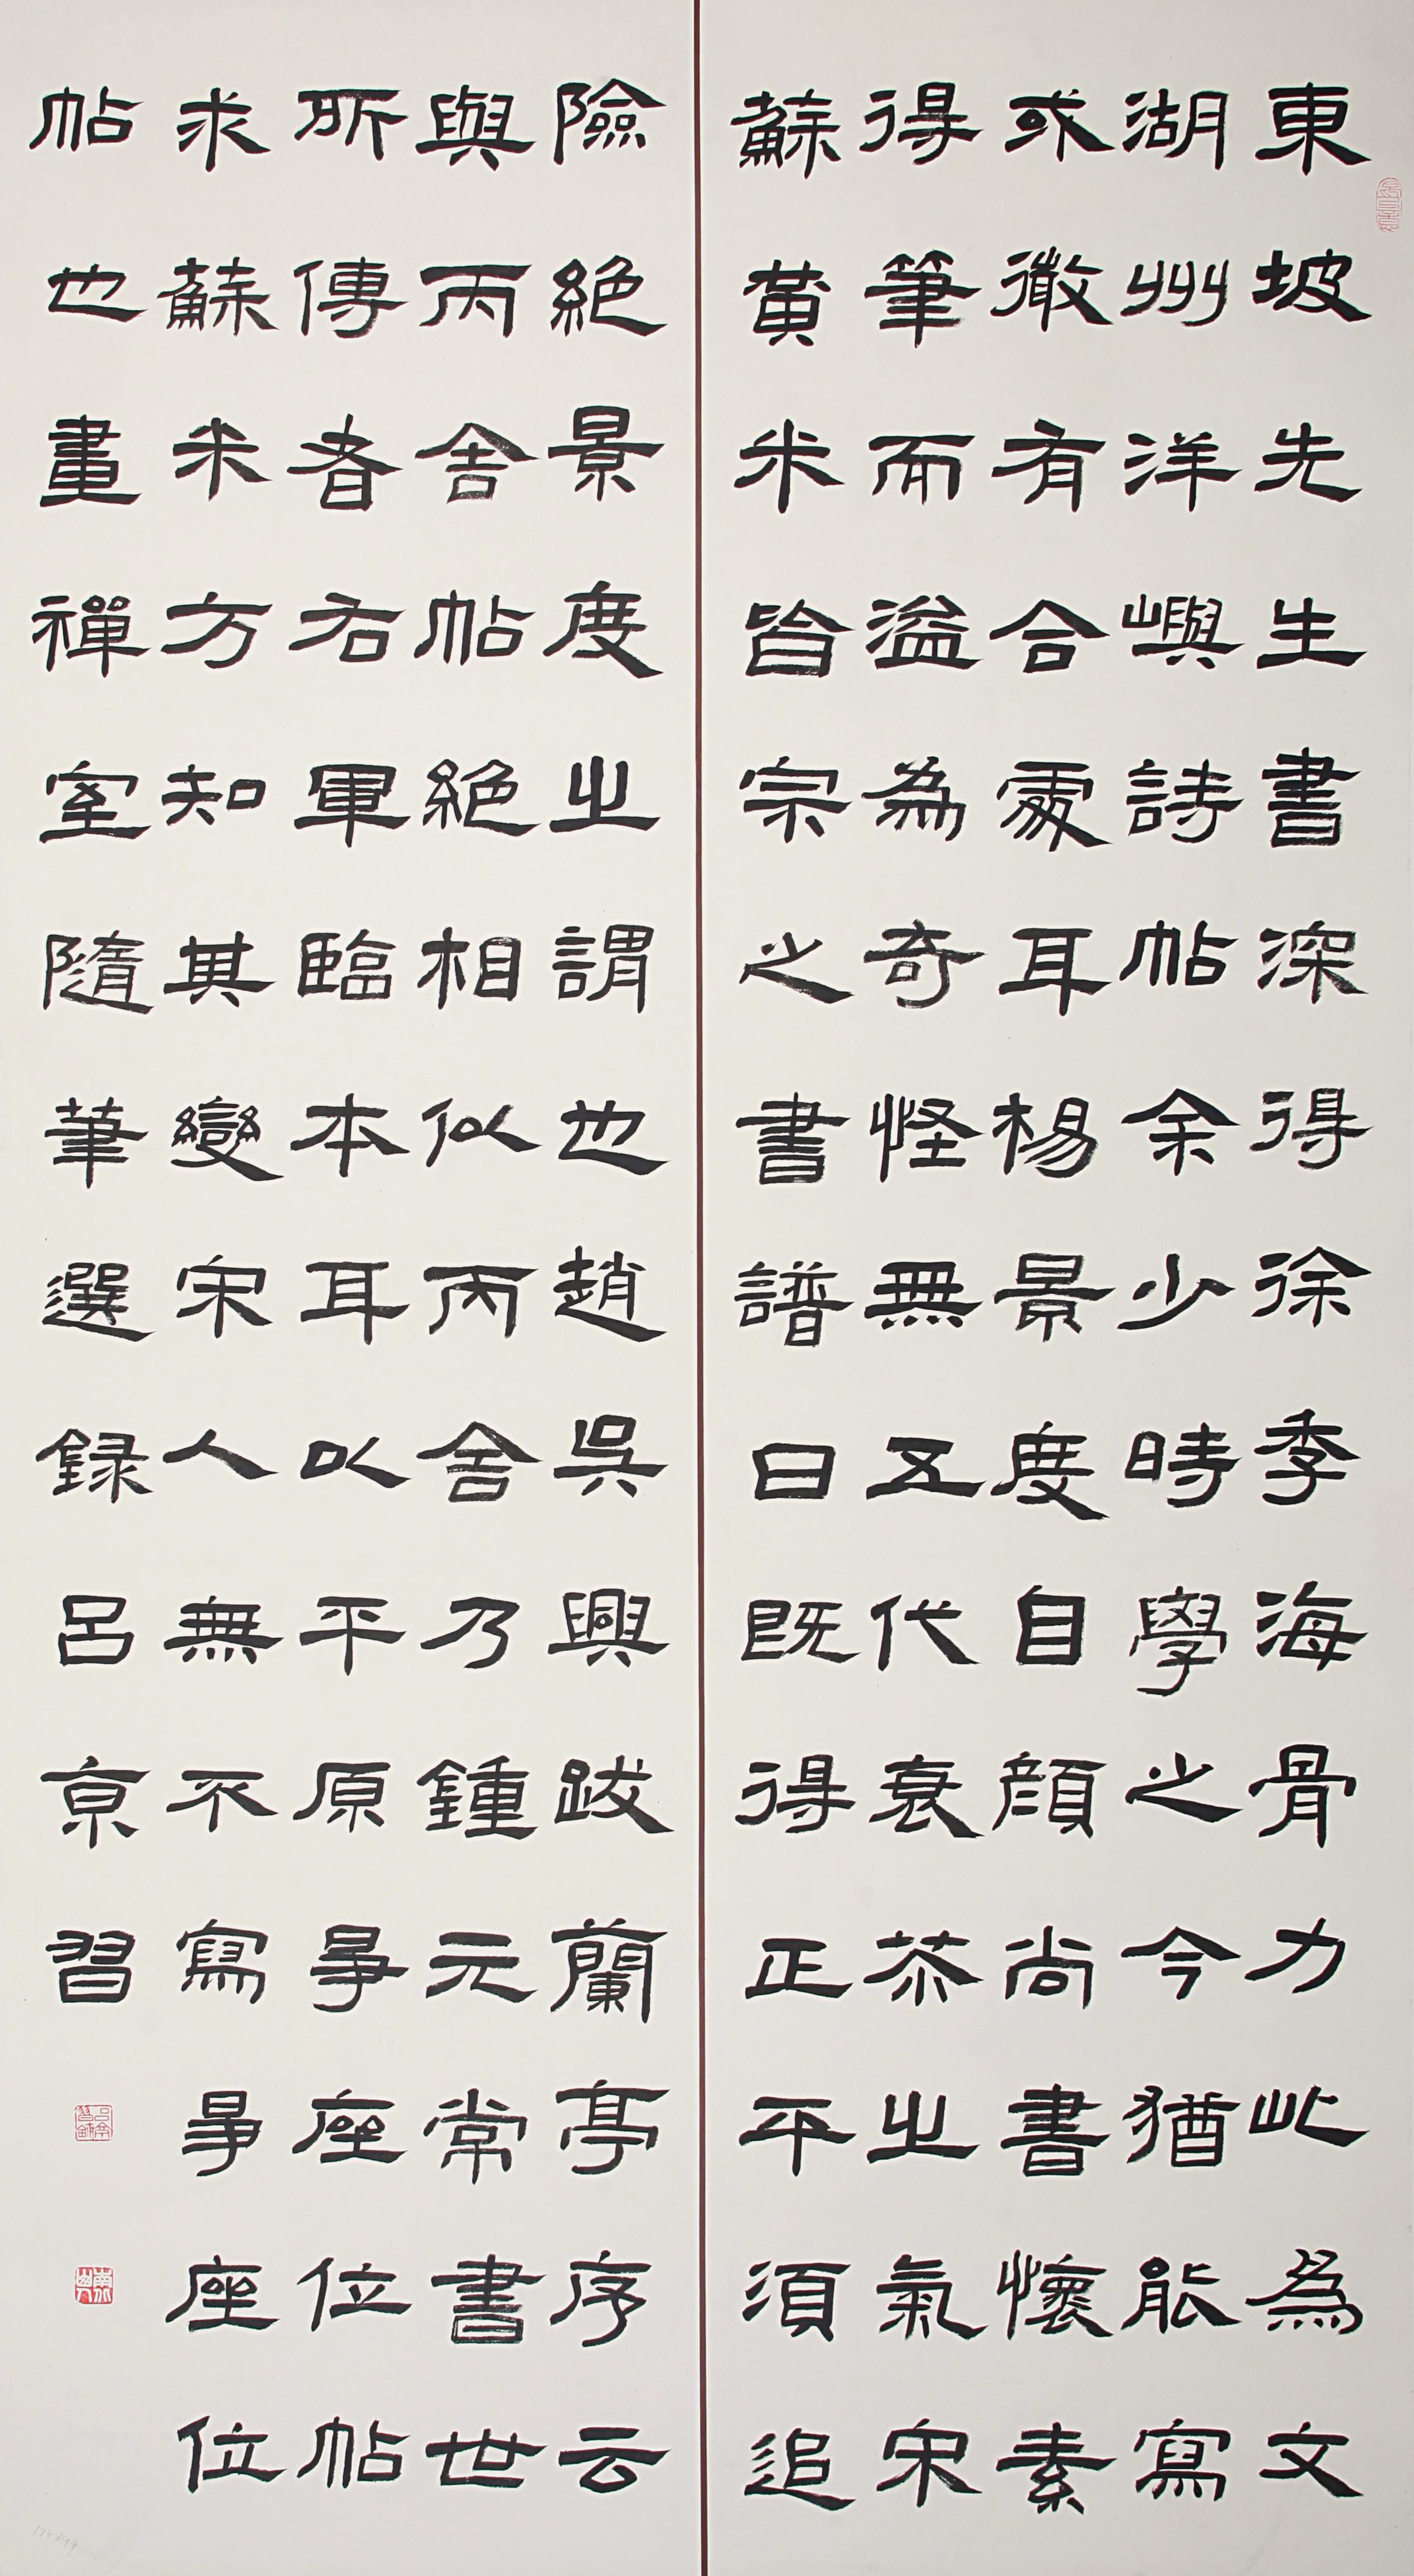 東坡先生書深得徐季海骨力此為文
湖州洋嶼詩帖余少時學之今猶能寫
或徵有合處耳楊景度自顏尚書懷素
得筆而溢為奇怪無五代衰苶之氣宋
蘇黃米皆宗之書譜曰既得正平須追
險絕景度之謂也趙吳興跋蘭亭序云
與丙舍帖絕相似丙舍乃鍾元常書世
所傳者右軍臨本耳以平原爭座位帖
求蘇米方知其變宋人無不寫爭座位
帖也畫禪室隨筆選録呂亰習